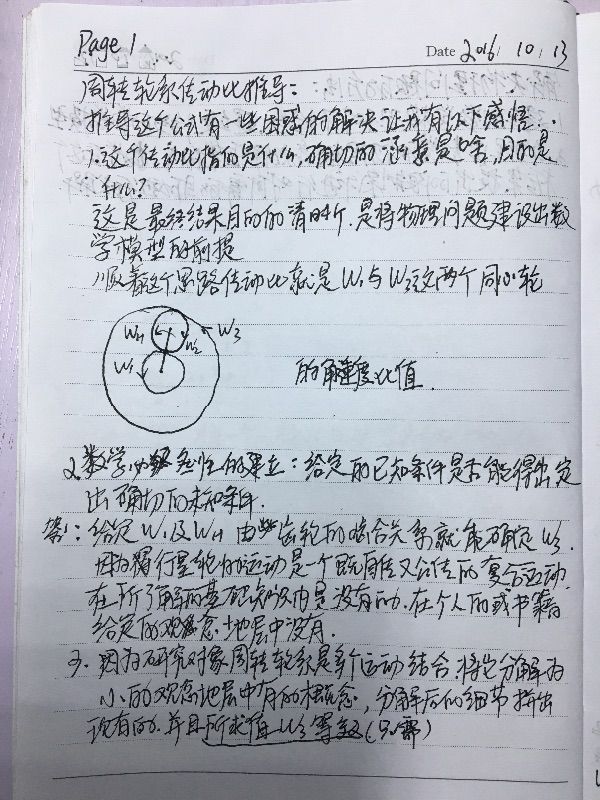 Page 1
Date 2016 / 10 / 13
周转轮系传动比推导：
推导这个公式有一些困惑的解决让我有以下感悟.
1.这个传动比指的是什么,确切的涵义是啥,目的是
什么?
这是最终结果目的的清晰.是将物理问题建设出数
学模型的前提
顺着这个思路传动比就是W1与W3这两个同心轮
WH W2 W3
W1
的角速度比值.
2.数学 性的建立：给定的已知条件是否能得出定
出确切的未知条件.
答1：给定W1及WH 由 齿轮的啮合关系就能确定W3.
因为 行星轮的运动是一个既自传又公传的复合运动
在所了解的基础知识内是没有的.在个人的或书籍
给定的观念地层中没有.
3.因为研究对象周转轮系是多个运动结合.将它分解为
小的观念地层中有的概念,分解后的细节拼出
没有的.并且所求值W3等 (只需)